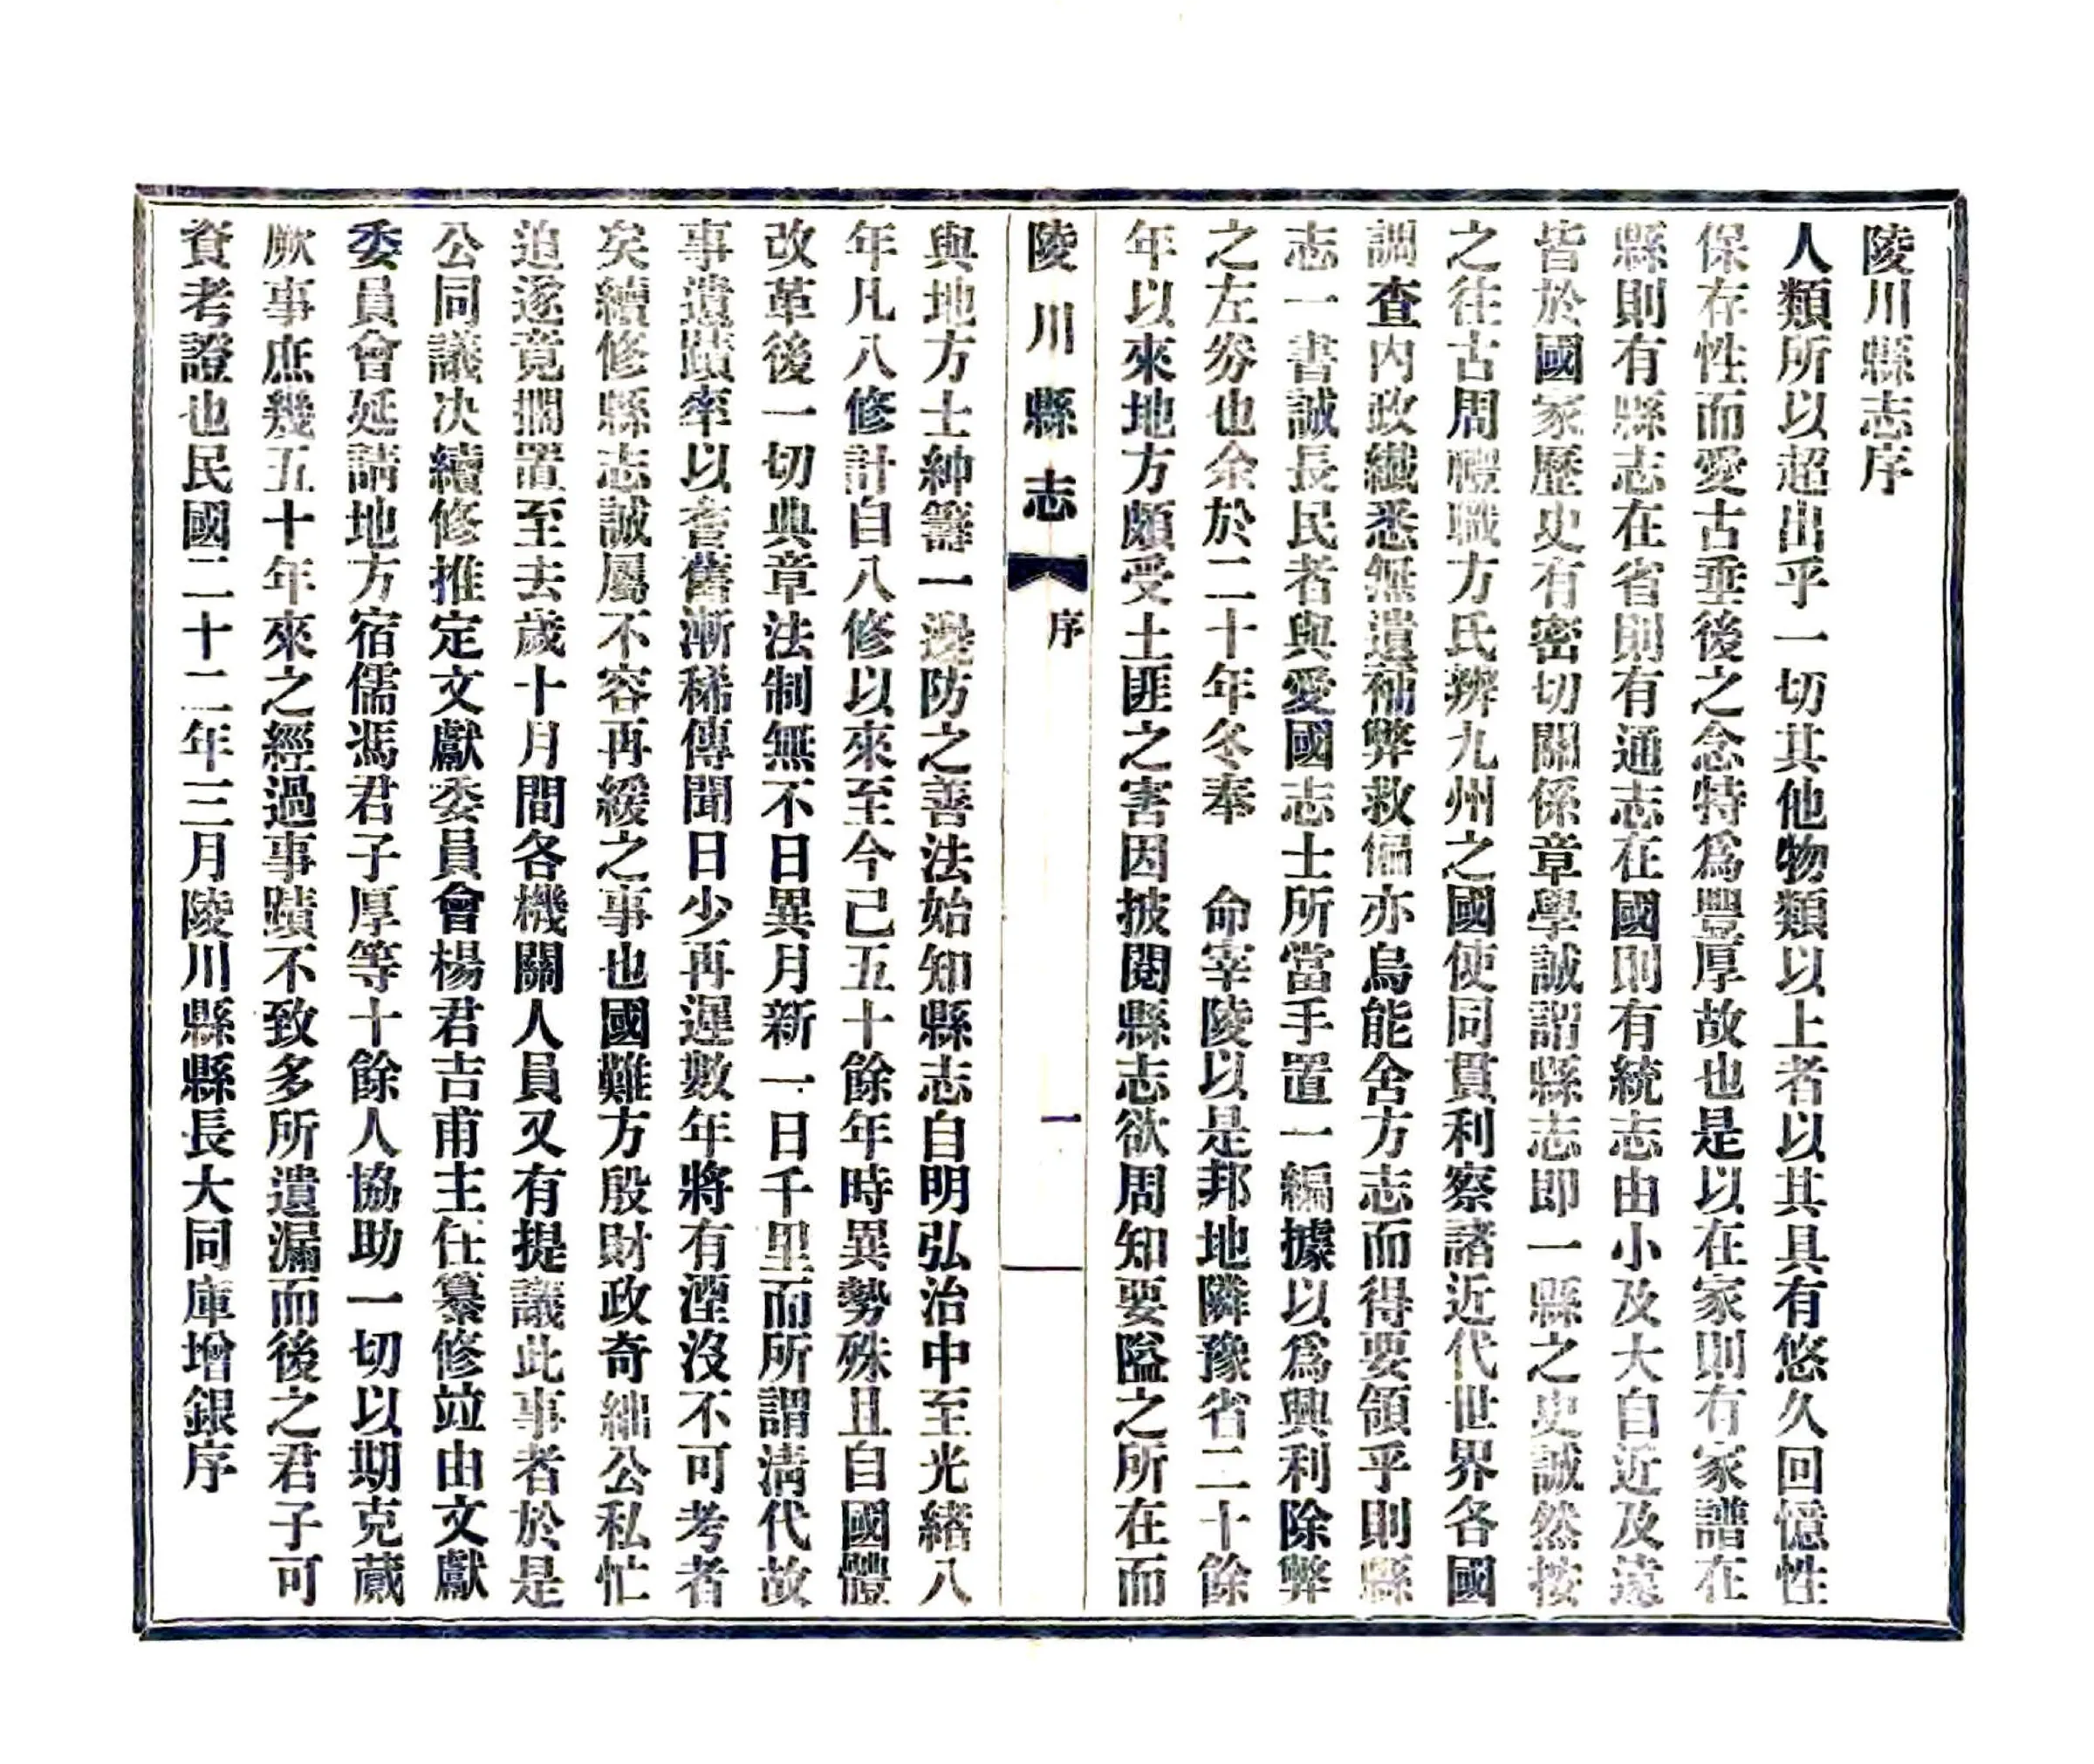 陵川縣志序
人類所以超出乎一切其他物類以上者以其具有悠久回憶性
保存性而愛古垂後之念特爲豐厚故也是以在家則有家譜在
縣則有縣志在省則有通志在國則有統志由小及大自近及遠
皆於國家歷史有密切關係章學誠謂縣志即一縣之史誠然按
之往古周禮職方氏辨九州之國使同貫利察諸近代世界各國
調查內政纖悉無遺補弊救偏亦烏能舍方志而得要領乎則縣
志一書誠長民者與愛國志士所當手置一編據以爲興利除弊
之左券也余於二十年冬奉　命宰陵以是邦地隣豫省二十餘
年以來地方頗受土匪之害因披閱縣志欲周知要隘之所在而
陵川縣志
序
一
與地方士紳籌一邊防之善法始知縣志自明弘治中至光緒八
年凡八修計自八修以來至今已五十餘年時異勢殊且自國體
改革後一切典章法制無不日異月新一日千里而所謂清代故
事遺蹟率以耆舊漸稀傳聞日少再遲數年將有湮沒不可考者
矣續修縣志誠屬不容再緩之事也國難方殷財政奇絀公私忙
迫遂竟擱置至去歲十月間各機關人員又有提議此事者於是
公同議決續修推定文獻委員會楊君吉甫主任纂修竝由文獻
委員會延請地方宿儒馮君子厚等十餘人協助一切以期克蕆
厥事庶幾五十年來之經過事蹟不致多所遺漏而後之君子可
資考證也民國二十二年三月陵川縣縣長大同庫增銀序